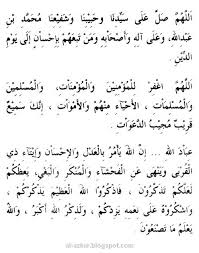 اَللّٰهُمَّ صَلِّ عَلَى سَيِّدِنَا وَحَبِيْبِنَا وَشَفِيْعِنَا مُحَمَّدِ بْنِ
عَبْدِاللهِ، وَعَلَى آلِهِ وَأَصْحَابِهِ وَمَنْ تَبِعَهُمْ بِإِحْسَانٍ إِلَى يَوْمِ
الدِّيْنِ
اَللّٰهُمَّ اغْفِرْ لِلْمُؤْمِنِيْنَ وَالْمُؤْمِنَاتِ، وَالْمُسْلِمِيْنَ
وَالْمُسْلِمَاتِ، اَلْأَحْيَاءِ مِنْهُمْ وَالْأَمْوَاتِ، إِنَّكَ سَمِيْعٌ
قَرِيْبٌ مُجِيْبُ الدَّعَوَاتِ
عِبَادَ اللهِ ... إِنَّ اللهَ يَأْمُرُ بِالْعَدْلِ وَالْإِحْسَانِ وَإِيْتَاءِ ذِي
الْقُرْبَى وَيَنْهَى عَنِ الْفَحْشَاءِ وَالْمُنْكَرِ وَالْبَغْيِ، يَعِظُكُمْ
لَعَلَّكُمْ تَذَكَّرُوْنَ، فَاذْكُرُوا اللهَ الْعَظِيْمَ يَذْكُرْكُمْ،
وَاشْكُرُوْهُ عَلَى نِعَمِهِ يَزِدْكُمْ، وَلَذِكْرُ اللهِ أَكْبَرُ، وَاللهُ
يَعْلَمُ مَا تَصْنَعُوْنَ
al-azkar.blogspot.com